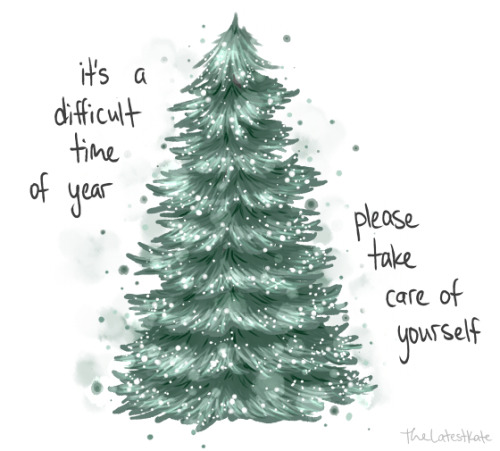 it's a
difficult
time
of year
please
take
care of
yourself
TheLatestKate